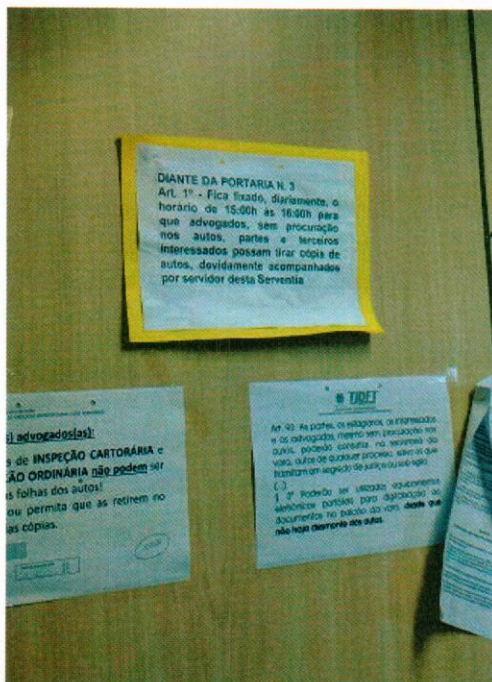 DIANTE DA PORTARIA N. 3
Art. 1º - Fica fixado, diariamente, o
horário de 15:00h às 16:00h para
que advogados, sem procuração
nos autos, partes e terceiros
interessados possam tirar cópia de
autos, devidamente acompanhados
por servidor desta Serventia
advogados(as):
s de INSPEÇÃO CARTORÁRIA e
ÃO ORDINÁRIA não podem ser
s folhas dos autos!
ou permita que as retirem no
as cópias.
TJDFT
Art. 93. As partes, os estagiários, os interessados
e os advogados, mesmo sem procuração nos
autos, poderão consultar, na secretaria da
vara, autos de qualquer processo, salvo os que
tramitam em segredo de justiça ou sob sigilo.
(...)
§ 3º Poderão ser utilizados equipamentos
eletrônicos portáteis para digitalização de
documentos no balcão da vara, desde que
não haja desmonte dos autos.